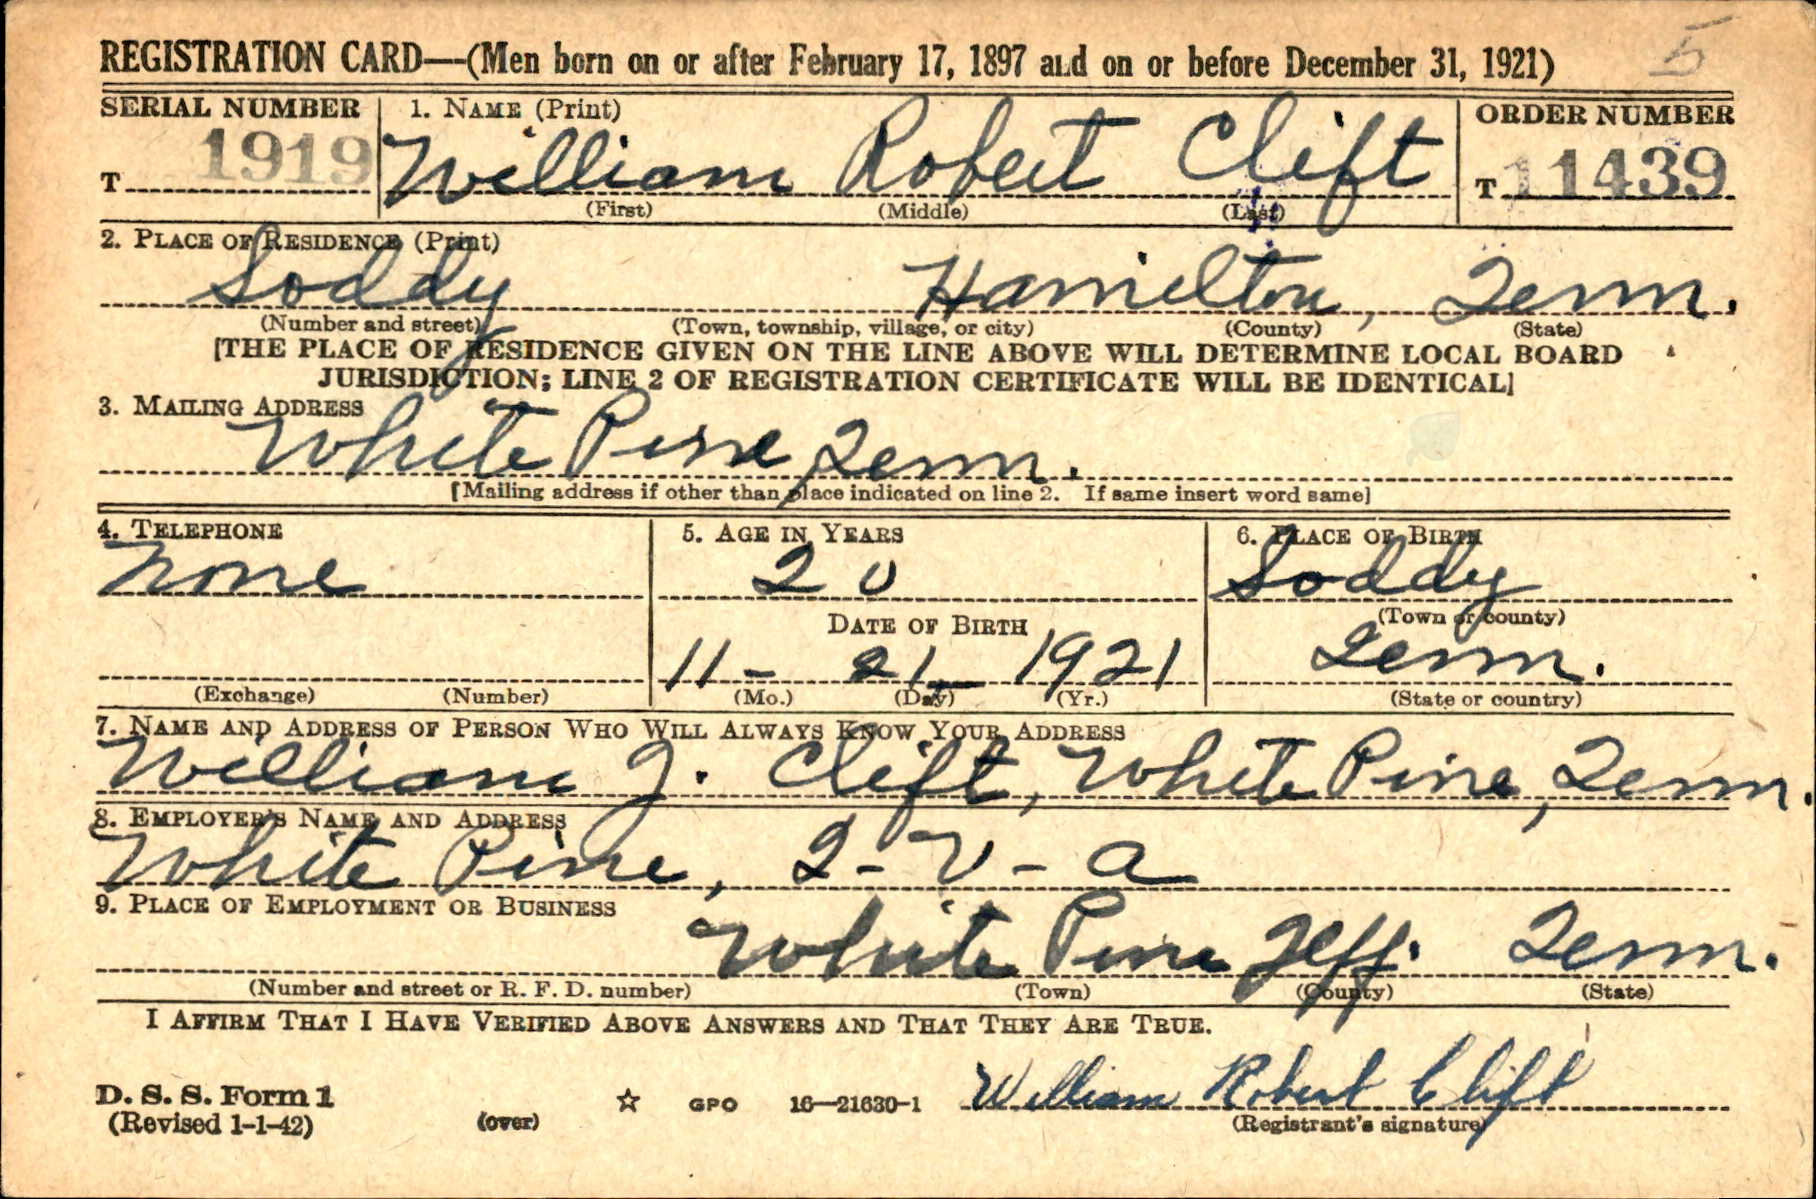 5
REGISTRATION CARD—(Men born on or after February 17, 1897 and on or before December 31, 1921)
SERIAL NUMBER 1. NAME (Print) ORDER NUMBER
T 1919 William Robert Clift T 11439
(First) (Middle) (Last)
2. PLACE OF RESIDENCE (Print)
Soddy Hamilton, Tenn.
(Number and street) (Town, township, village, or city) (County) (State)
[THE PLACE OF RESIDENCE GIVEN ON THE LINE ABOVE WILL DETERMINE LOCAL BOARD
JURISDICTION; LINE 2 OF REGISTRATION CERTIFICATE WILL BE IDENTICAL]
3. MAILING ADDRESS
White Pine Tenn.
[Mailing address if other than place indicated on line 2. If same insert word same]
4. TELEPHONE 5. AGE IN YEARS 6. PLACE OF BIRTH
None 20 Soddy
(Town or county)
DATE OF BIRTH
11- 21- 1921 Tenn.
(Exchange) (Number) (Mo.) (Day) (Yr.) (State or country)
7. NAME AND ADDRESS OF PERSON WHO WILL ALWAYS KNOW YOUR ADDRESS
William J. Clift, White Pine, Tenn.
8. EMPLOYER'S NAME AND ADDRESS
White Pine, T-V-A
9. PLACE OF EMPLOYMENT OR BUSINESS
White Pine Jeff. Tenn.
(Number and street or R. F. D. number) (Town) (County) (State)
I AFFIRM THAT I HAVE VERIFIED ABOVE ANSWERS AND THAT THEY ARE TRUE.
D. S. S. Form 1
(Revised 1-1-42) (over) ☆ GPO 16—21630-1 William Robert Clift
(Registrant's signature)